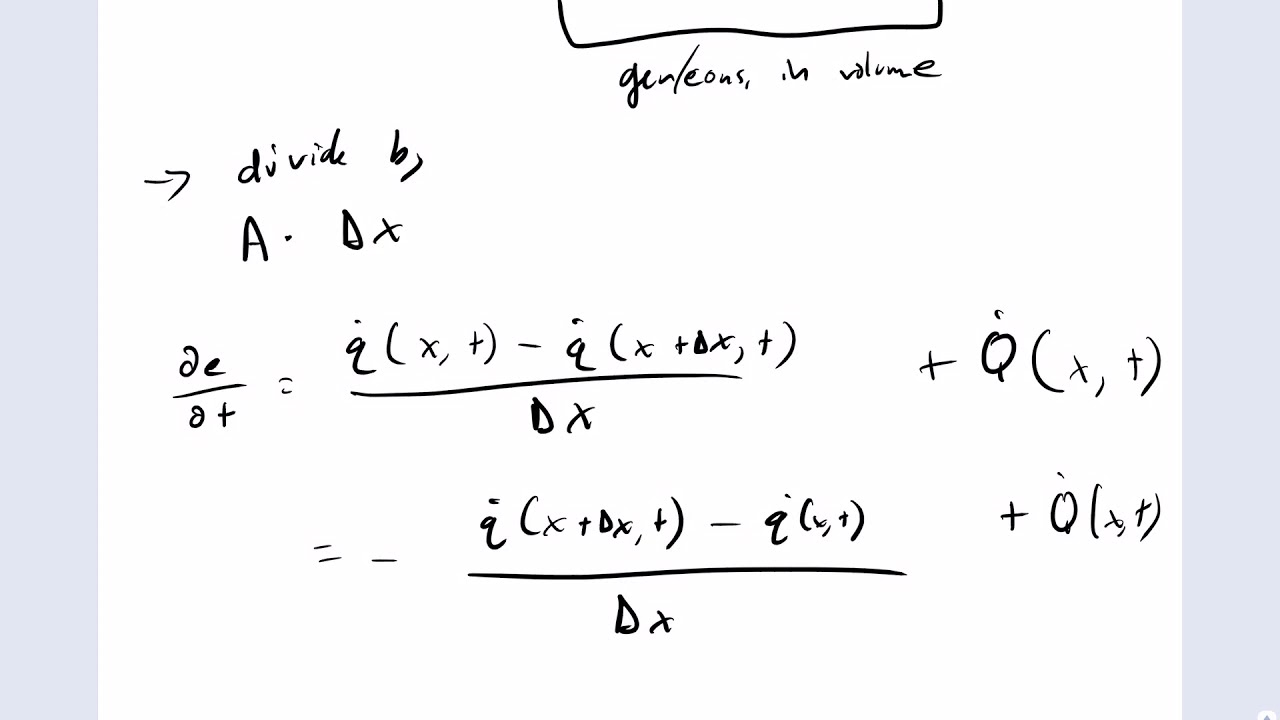 gen/cons, in volume
→ divide by
A · Δx
∂e/∂t = (q̇(x, t) − q̇(x + Δx, t))/Δx + Q̇(x, t)
= − (q̇(x + Δx, t) − q̇(x, t))/Δx + Q̇(x, t)